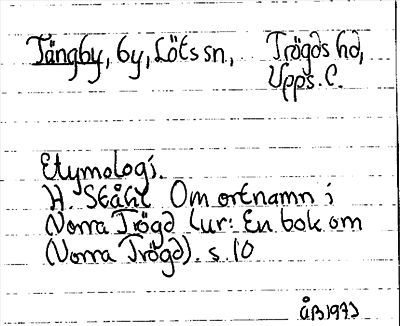 Tängby, by, Löts sn, Trögds hd,
Upps. l.
Etymologi.
H. Ståhl Om ortnamn i
Norra Trögd (ur: En bok om
Norra Trögd). s. 10
ÅB 1973